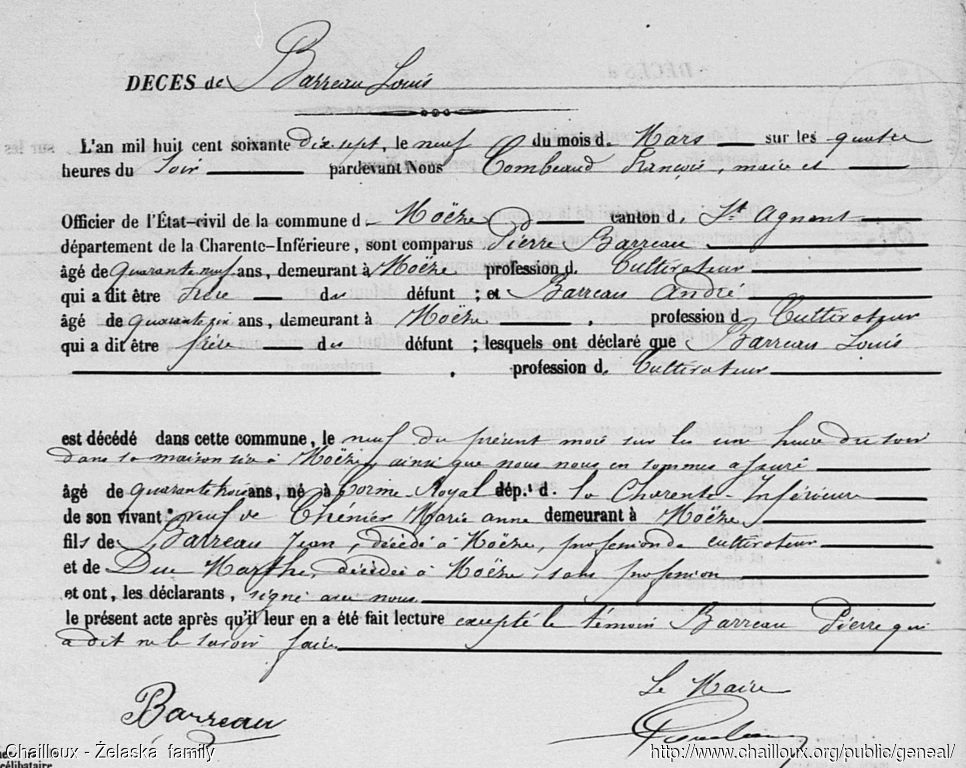 DECES de Barreau Louis
L'an mil huit cent soixante dix sept, le neuf du mois d. Mars sur les quatre
heures du Soir pardevant Nous Combeaud François, maire et
Officier de l'État-civil de la commune d. Moëze canton d. St Agnant
département de la Charente-Inférieure, sont comparus Pierre Barreau
âgé de quarante neuf ans, demeurant à Moëze profession d. Cultivateur
qui a dit être frère du défunt ; et Barreau André
âgé de quarante six ans, demeurant à Moëze , profession d Cultivateur
qui a dit être frère du défunt ; lesquels ont déclaré que Barreau Louis
, profession d. Cultivateur
est décédé dans cette commune, le neuf du présent mois sur les une heure du soir
dans sa maison sise à Moëze, ainsi que nous nous en sommes assuré
âgé de quarante trois ans, né à Corme Royal dép.t d. la Charente-Inférieure
de son vivant : veuf de Chénier Marie anne demeurant à Moëze
fils de Barreau Jean, décédé à Moëze, profession de cultivateur
et de Duc Marthe, décédée à Moëze, sans profession
et ont, les déclarants, signé avec nous
le présent acte après qu'il leur en a été fait lecture excepté le témoin Barreau Pierre qui
a dit ne le savoir faire
Le Maire
Barreau
Chailloux - Želaska family
http://www.chailloux.org/public/geneal/
célibataire